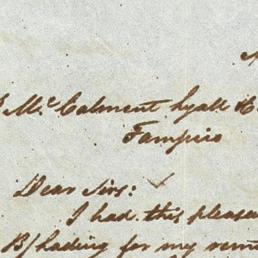 Mc. Calmont Lyall &
Tampico
Dear Sirs:
I had this pleasu
B/ lading for my remi